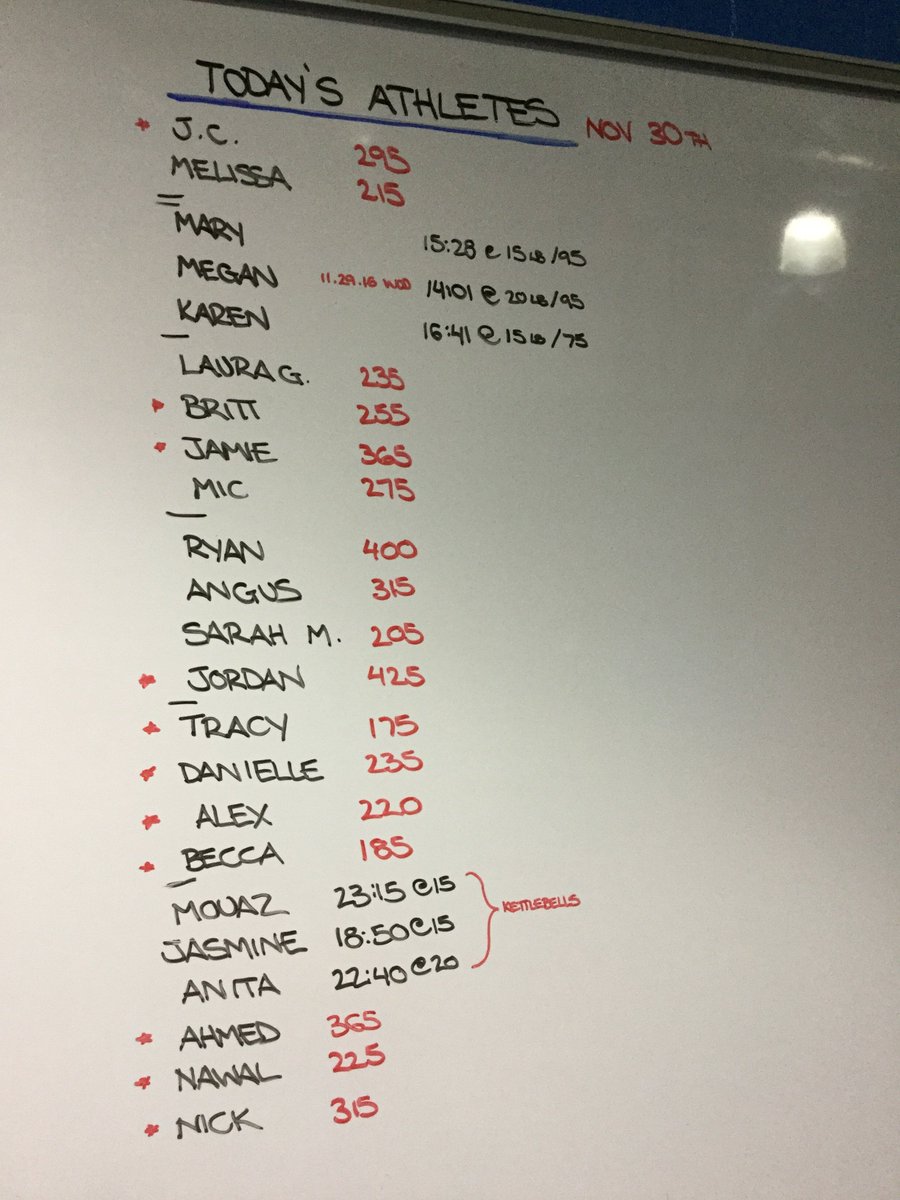 TODAY'S ATHLETES NOV 30TH
* J.C. 295
MELISSA 215
MARY 15:28 @ 15LB/95
MEGAN 11.29.16 WOD 14:01 @ 20LB/95
KAREN 16:41 @ 15LB/75
LAURA G. 235
* BRITT 255
* JAMIE 365
MIC 275
RYAN 400
ANGUS 315
SARAH M. 205
* JORDAN 425
* TRACY 175
* DANIELLE 235
* ALEX 220
* BECCA 185
MOUAZ 23:15 @15
JASMINE 18:50 @15 KETTLEBELLS
ANITA 22:40 @20
* AHMED 365
* NAWAL 225
* NICK 315